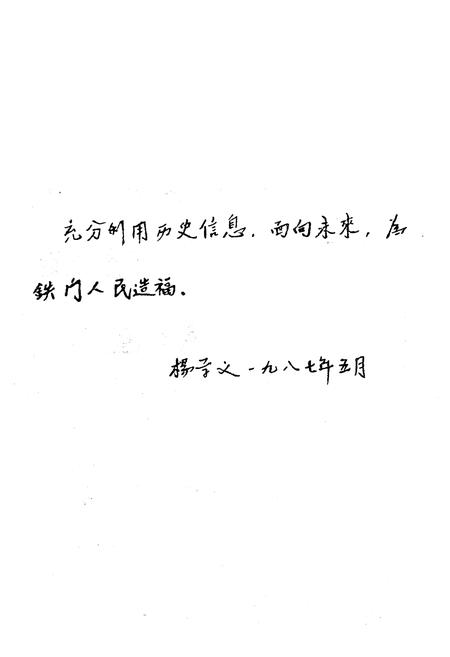 充分利用历史信息,面向未来,为
鉄门人民造福.
楊学文 一九八七年五月